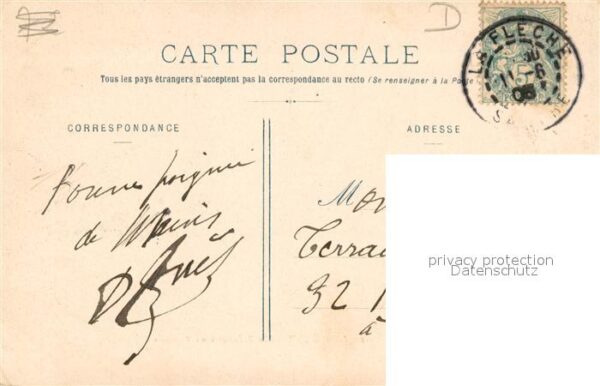 D
CARTE POSTALE
Tous les pays étrangers n'acceptent pas la correspondance au recto (Se renseigner à la Poste
LA FLECHE
11 -6
05
CORRESPONDANCE
ADRESSE
Bonne poignée
de Mains
Mon
Terra
32
à
privacy protection
Datenschutz